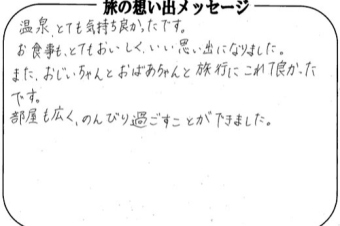 旅の想い出メッセージ
温泉、とても気持ち良かったです。
お食事も、とてもおいしく、いい思い出になりました。
また、おじいちゃんとおばあちゃんと旅行にこれて良かった
です。
部屋も広く、のんびり過ごすことができました。